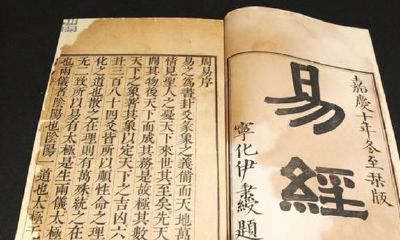 嘉慶十年冬至栞版
易經
寧化伊秉綬題
周易序
易之爲書卦爻彖象之義備而天地萬
情見聖人之憂天下來世其至矣先天
開其物後天下而成其務是故極其數
天下之象著其象以定天下之吉凶六
卦三百八十四爻皆所以順性命之理
化之道也散之在理則有萬殊統之在
无二致所以易有太極是生兩儀太
也兩儀者陰陽也陰陽一道也太極无